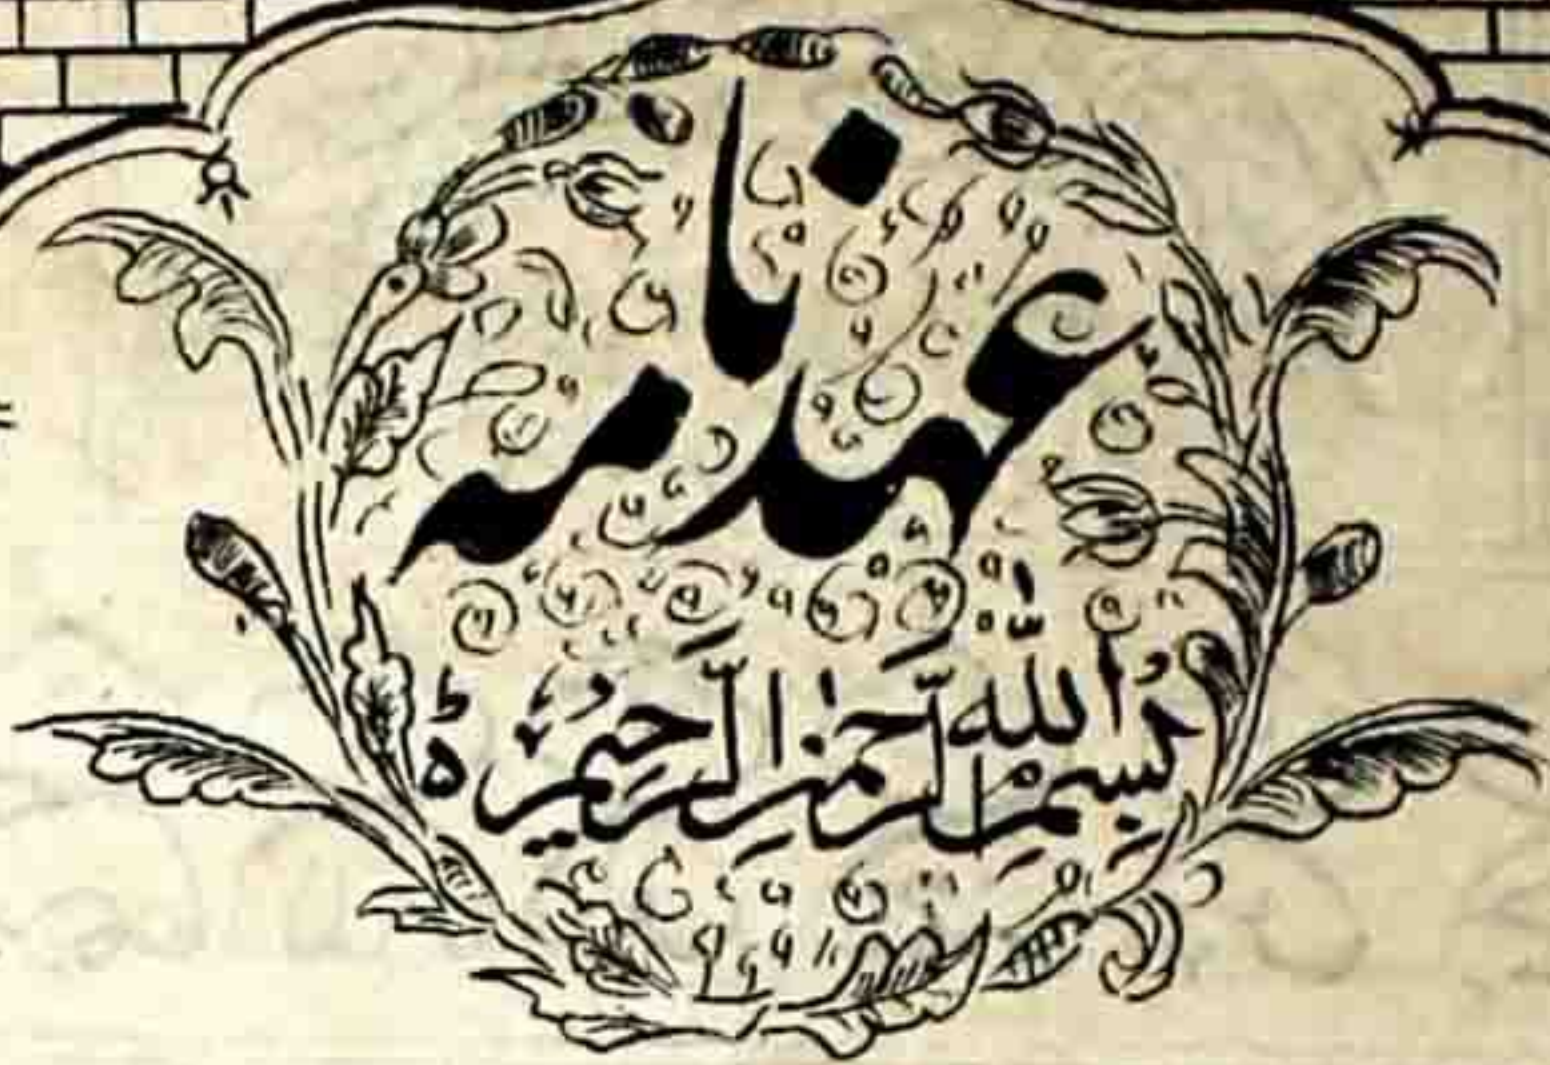 عہد نامہ
بِسْمِ اللّٰهِ الرَّحْمٰنِ الرَّحِيْمِ ط